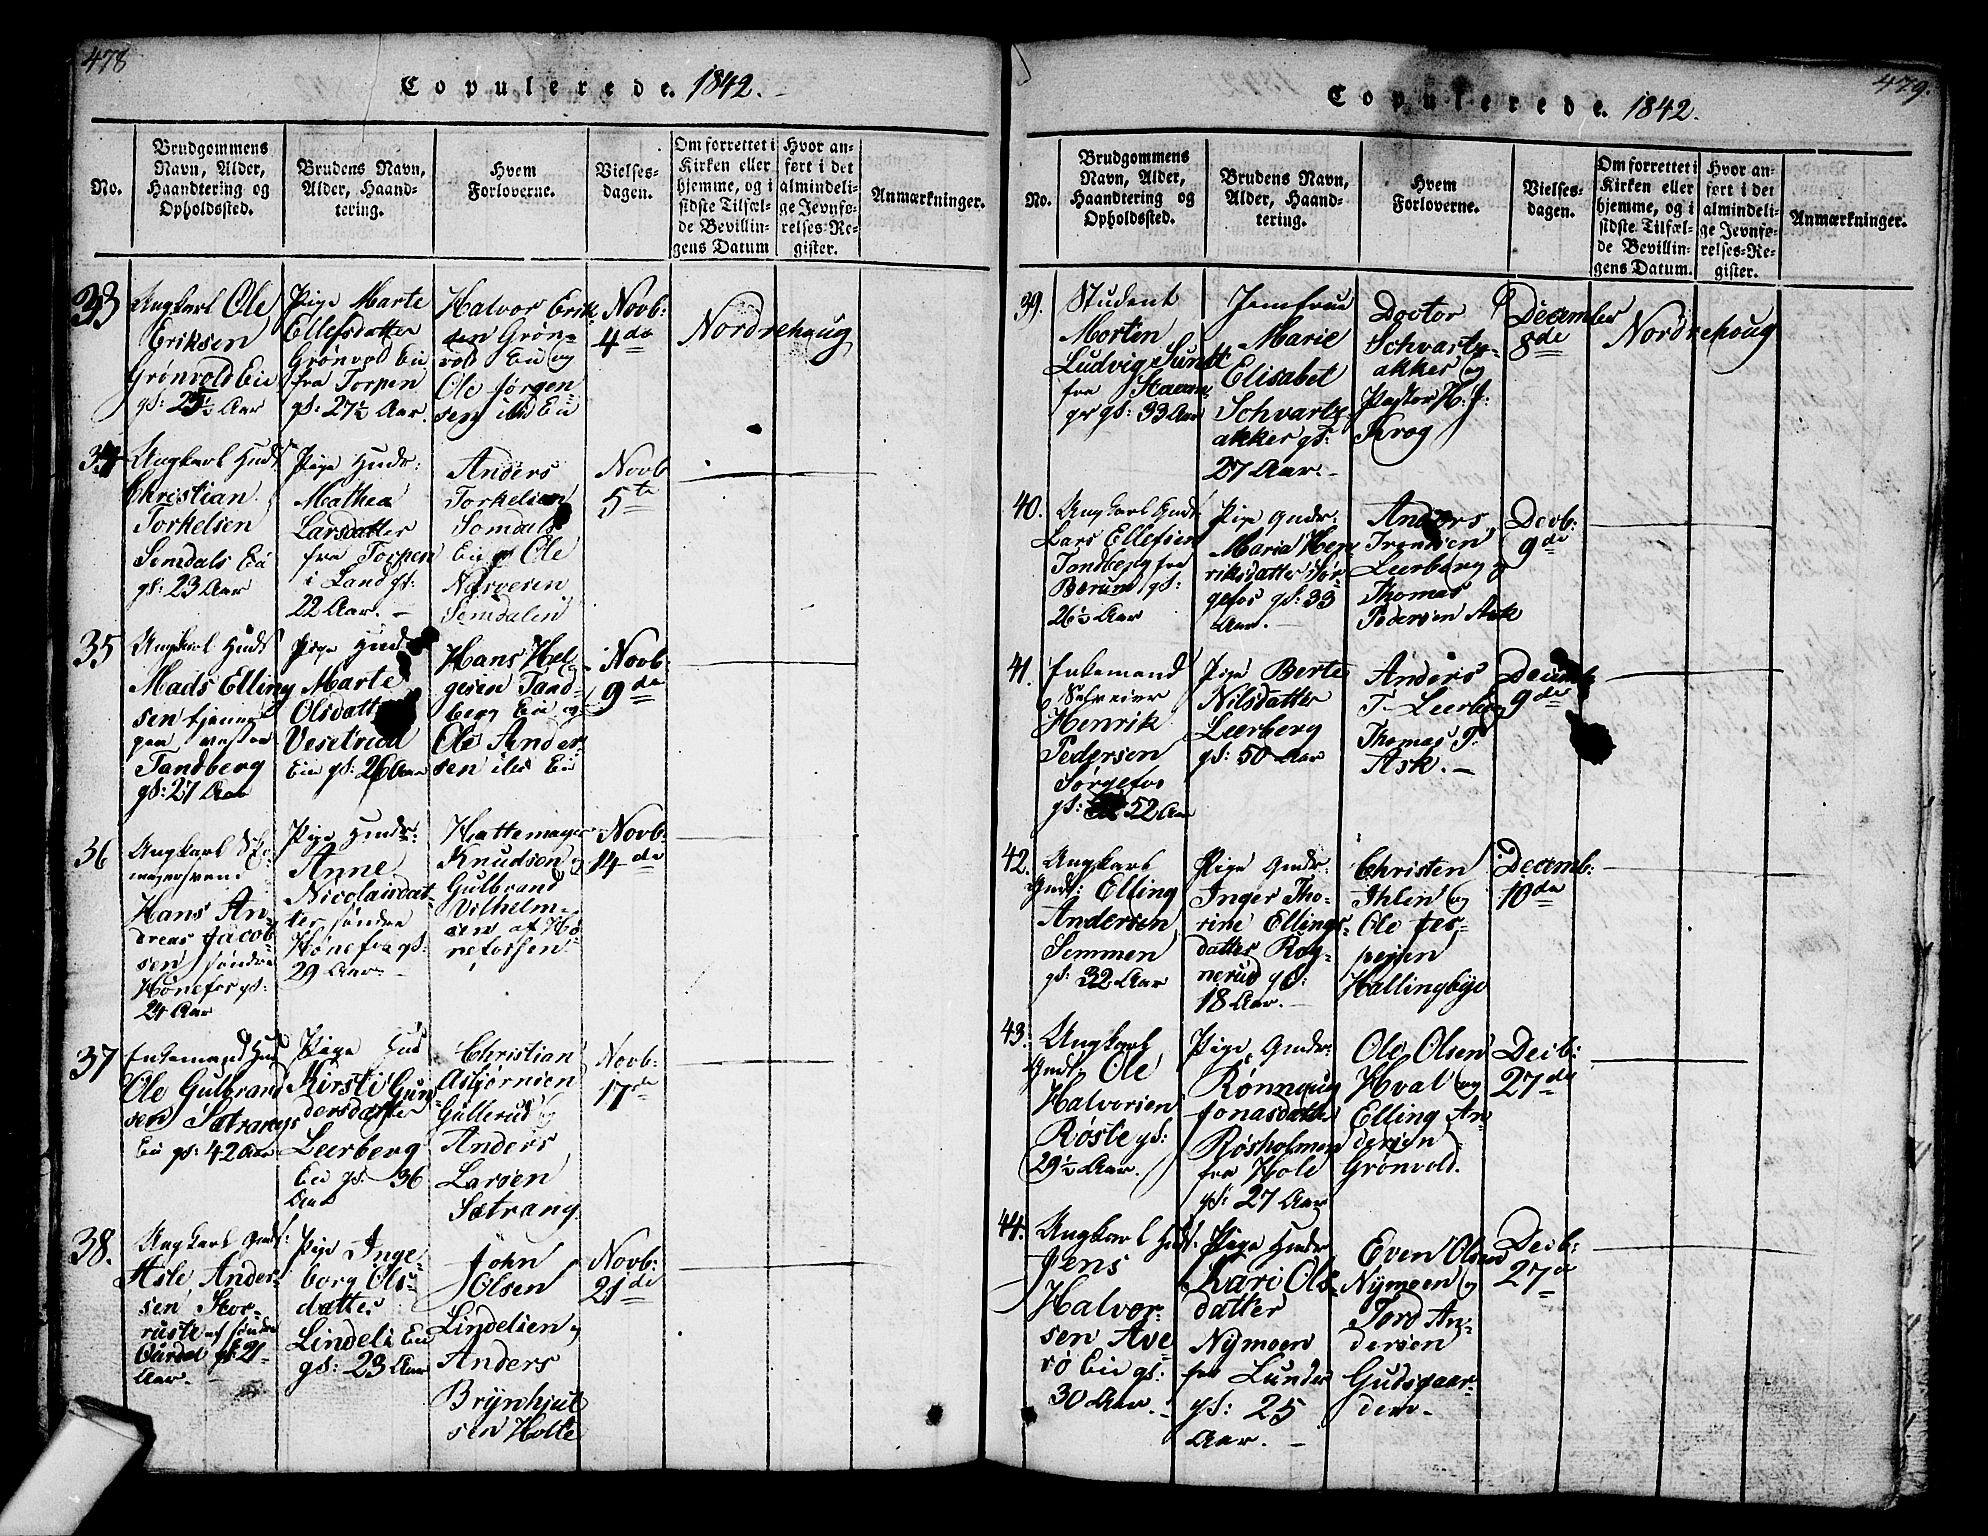 478
Copulerede. 1842.
No.
Brudgommens
Navn, Alder,
Haandtering og
Opholdssted.
Brudens Navn,
Alder, Haand-
tering.
Hvem
Forloverne.
Vielses-
dagen.
Om forrettet i
Kirken eller
hjemme, og i
sidste Tilfæl-
de Bevillin-
gens Datum
Hvor an-
ført i det
almindeli-
ge Jevnfø-
relses-Re-
gister.
Anmærkninger.
33
Ungkarl Ole
Eriksen
Grønvold Eie
gl: 25½ Aar
Pige Marte
Ellefsdatter
Grønvold Eie
fra Torpen
gl: 27½ Aar.
Halvor Erik
Grøn-
vold Eie og
Ole Jørgen
sen ibd Eie
Novb:
4de
Nordrehoug
34
Ungkarl Huds
Christian
Torkelsen
Semdals Eie
gl: 23 Aar
Pige Huds:
Mathea
Larsdatter
fra Torpen
i Land gl:
22 Aar. –
Anders
Torkelsen
Somdals
Eie og Ole
Narvesen
Semdalen
Novb
5te
35
Ungkarl Huds
Mads Elling
sen tjenner
paa vestre
Tandberg
gl: 27 Aar
Pige Huds
Marte
Olsdatt
Vesetrud
Eie gl: 26 Aar
Hans Hel-
gesen Tand-
berg Eie og
Ole Ander
sen ibd Eie
Novb:
9de
36
Ungkarl Sko-
magersvend
Hans An-
dreas Jacob-
sen søndre
Hønefos gl:
24 Aar
Pige Huds:
Anne
Nicolaisdat-
ter søndre
Hønefos gl:
29 Aar. –
Hattemager
Knudsen og
Gulbrand
Vilhelm-
sen af Hø-
nefossen.
Novb:
14de
37
Enkemand Hus
Ole Gulbrand
sen Sætrangs
Eie gl: 42 Aar
Pige Hus
Kirsti Gun-
dersdatter
Leerberg
Eie gl: 36
Aar
Christian
Asbjørnsen
Gullerud og
Anders
Larsen
Sætrang.
Novb:
17de
38.
Ungkarl Gads:
Asle Ander-
sen Stor-
ruste af søndre
Ourdal gl: 21
Aar. –
Pige Inge-
borg Ols-
datter
Lindeli Eie
gl: 23 Aar
John
Olsen
Lindelien og
Anders
Brynhjul
sen Holte
Novb:
21de
479.
Copulerede. 1842.
No.
Brudgommens
Navn, Alder,
Haandtering og
Opholdssted.
Brudens Navn,
Alder, Haand-
tering.
Hvem
Forloverne.
Vielses-
dagen.
Om forrettet i
Kirken eller
hjemme, og i
sidste Tilfæl-
de Bevillin-
gens Datum.
Hvor an-
ført i det
almindeli-
ge Jevnfø-
relses-Re-
gister.
Anmærkninger.
39.
Student
Morten
Ludvig Sundt
fra Stavan-
ger gl: 33 Aar
Jomfrue
Marie
Elisabet
Schvartz-
akker gl:
27 Aar. –
Doctor
Schvartz-
akker og
Pastor H. J:
Krog
December
8de
Nordrehoug
40.
Ungkarl Gads:
Lars Ellefsen
Tandberg fra
Berum gl:
26½ Aar
Pige Gads:
Maria Hen
riksdatter Sør-
gefos gl: 33
Aar. –
Anders
Tronsen
Leerberg og
Thomas
Pedersen Ask
Decb:
9de
41.
Enkemand
Selveier
Henrik
Pedersen
Sørgefos
gl: 52 Aar
Pige Berte
Nilsdatter
Leerberg
gl: 50 Aar
Anders
T. Leerberg
Thomas P.
Ask. –
Decemb
9de
42.
Ungkarl
Gads: Elling
Andersen
Semmen
gl: 32 Aar
Pige Gads:
Inger Tho-
rine Ellings-
datter Rog-
nerud gl:
18 Aar. –
Christen
Ihlen og
Ole Jes-
persen
Hallingbye
Decemb:
10de
43.
Ungkarl
Gads: Ole
Halvorsen
Røste gl:
29½ Aar.
Pige Gads:
Rønnoug
Jonasdatter
Røsholmen
fra Hole
gl: 27 Aar
Ole Olsen
Hval og
Elling An
dersen
Grønvold.
Decb:
27de
44.
Ungkarl Huds:
Jens
Halvor-
sen Ave
rø Eie gl:
30 Aar. –
Pige Huds
Kari Ols-
datter
Nymoen
fra Lunder
gl: 25
Aar. –
Even Olsen
Nymoen og
Tord An-
dersen
Gudsgaar-
den –
Decb:
27de